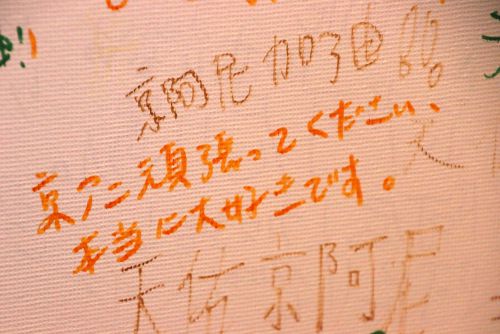 京阿尼加油!!
京アニ頑張ってください、
本当に大好きです。
天佑京阿尼